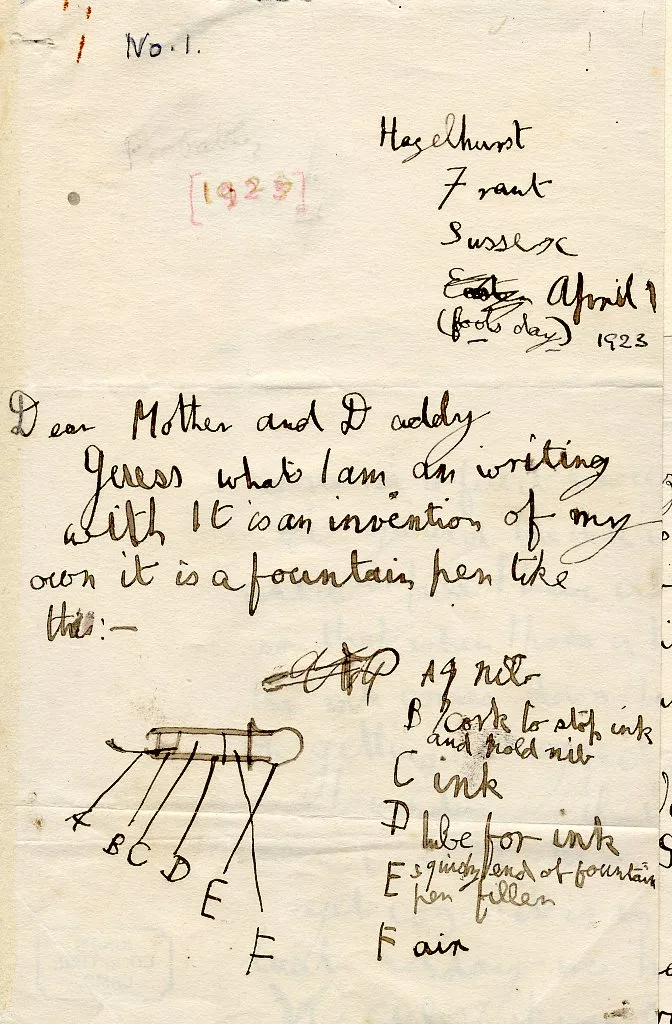 No. 1.
Probably
[1923]
Hazelhurst
Frant
Sussex
April 1
(fools day) 1923
Dear Mother and Daddy
Guess what I am an writing
with It is an invention of my
own it is a fountain pen like
this:—
A nib
B cork to stop ink
and hold nib
C ink
D tube for ink
E squishy end of fountain
pen filler
F air
A
B
C
D
E
F